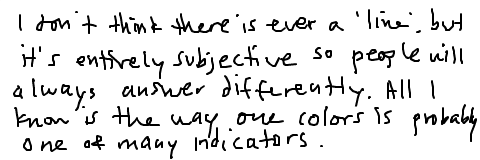 I don't think there is ever a 'line', but
it's entirely subjective so people will
always answer differently. All I
know is the way one colors is probably
one of many indicators.